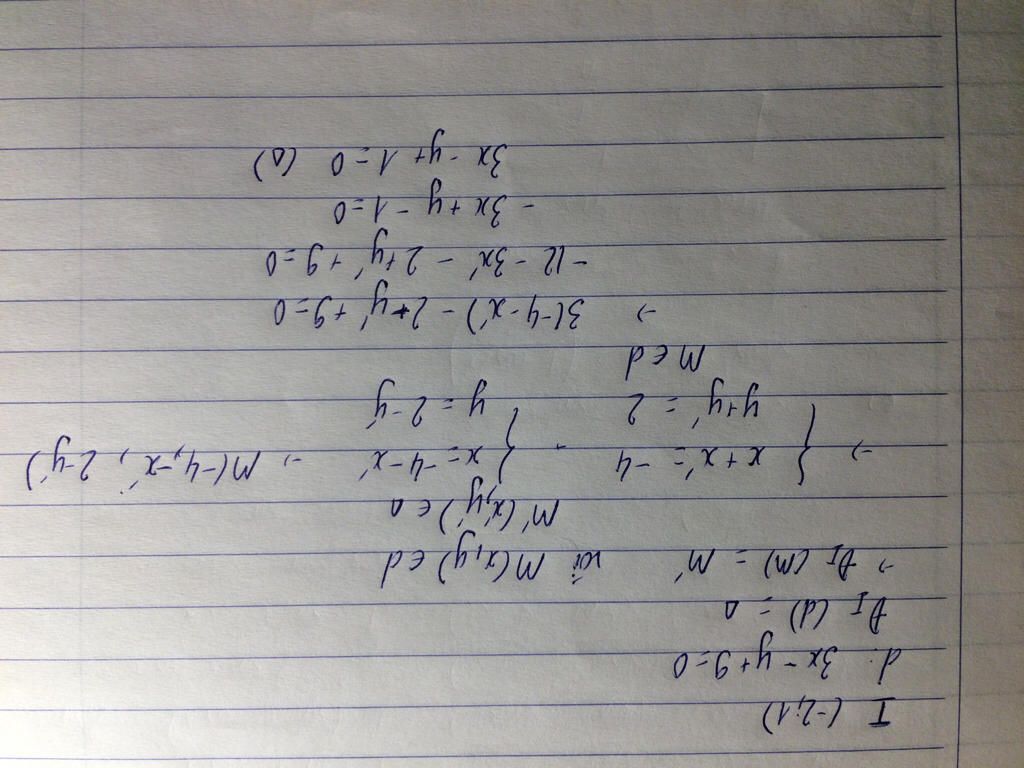 I (-2;1)
d: 3x - y + 9 = 0
Đ_I (d) = Δ
→ Đ_I (M) = M' với M(x,y) ∈ d
M'(x',y') ∈ Δ
→ { x + x' = -4 → { x = -4 - x' → M(-4,-x', 2-y')
y + y' = 2 y = 2 - y'
M ∈ d
→ 3(-4-x') - 2+y' + 9 = 0
-12 - 3x' - 2 + y' + 9 = 0
- 3x + y - 1 = 0
3x - y + 1 = 0 (Δ)